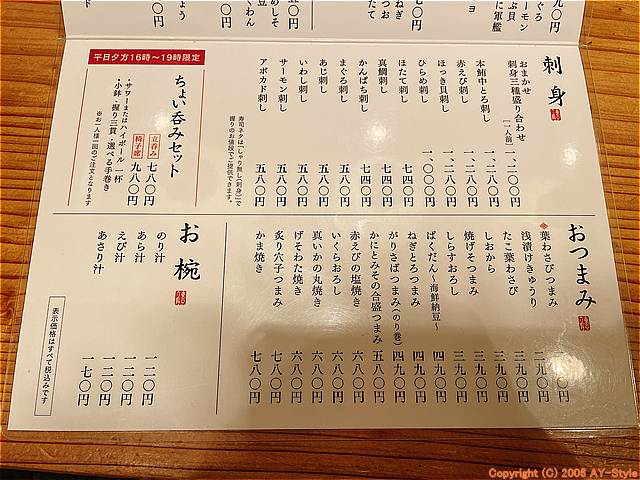 刺身
おまかせ
刺身三種盛り合わせ[一人前] 一、二〇〇円
本鮪中とろ刺し 一、二八〇円
赤えび刺し 一、二八〇円
ほっき貝刺し 一、二八〇円
ひらめ刺し 一、〇〇〇円
ほたて刺し 七四〇円
真鯛刺し 七四〇円
かんぱち刺し 七四〇円
まぐろ刺し 五八〇円
あじ刺し 五八〇円
いわし刺し 五八〇円
サーモン刺し 五八〇円
アボカド刺し 五八〇円
寿司ネタは「しゃり無し(刺身)」で
握りのお値段でご提供できます。
平日夕方16時〜19時限定
ちょい呑みセット
立呑み 七八〇円
椅子席 九八〇円
・サワーまたはハイボール 一杯
・小鉢・握り三貫・選べる手巻き
※お一人様一回のご注文となります
おつまみ
葉わさびつまみ
浅漬けきゅうり 二九〇円
たこ葉わさび 三九〇円
しおから 三九〇円
焼げそつまみ 三九〇円
しらすおろし 三九〇円
ばくだん〜海鮮納豆〜 四九〇円
ねぎとろつまみ 四九〇円
がりさばつまみ(のり巻) 四九〇円
かにとみその合盛つまみ 五八〇円
赤えびの塩焼き 六八〇円
いくらおろし 六八〇円
真いかの丸焼き 六八〇円
げそわた焼き 六八〇円
炙り穴子つまみ 七八〇円
かま焼き 七八〇円
お椀
のり汁 一二〇円
あら汁 一二〇円
えび汁 一二〇円
あさり汁 一七〇円
表示価格はすべて税込みです
Copyright (C) 2006 AY-Style